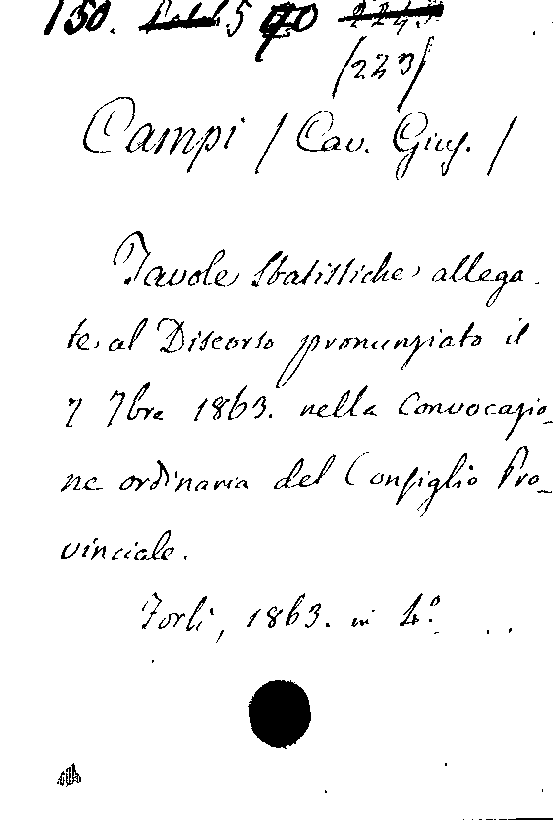 150. 5 90
(223)
Campi / Cav. Gius. /
Tavole Statistiche allega-
te al Discorso pronunziato il
7 7bre 1863. nella Convocazio-
ne ordinaria del Consiglio Pro-
vinciale.
Forlì, 1863. in 4º